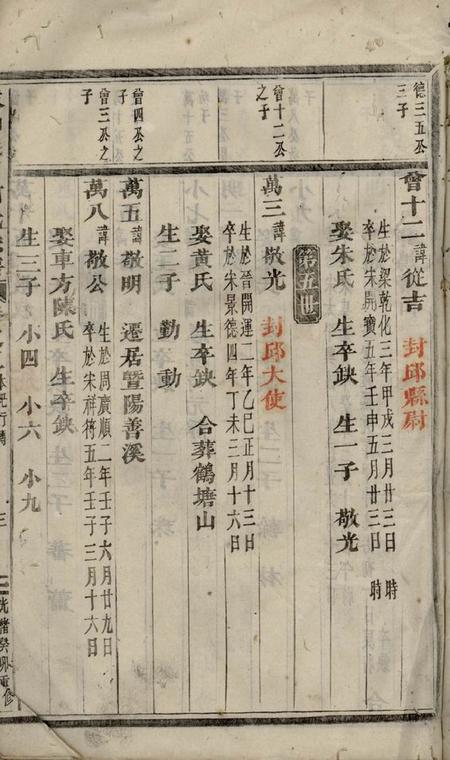 德三五公
三子
會十二諱從吉 封邱縣尉
生於梁乾化三年甲戌三月廿三日 時
卒於宋開寶五年壬申五月廿三日 時
娶朱氏 生卒缺 生一子 敬光
第五世
曾十二公
之子
萬三諱敬光 封邱大使
生於晉開運二年乙巳正月十三日
卒於宋景德四年丁未三月十六日
娶黃氏 生卒缺 合葬鶴塘山
生二子 勤 動
曾四公之
子
萬五諱敬明 遷居暨陽善溪
曾三公之
子
萬八諱敬公
生於周廣順二年壬子六月廿九日
卒於宋祥符五年壬子三月十六日
娶車方陳氏 生卒缺
生三子 小四 小六 小九
光緒癸卯重修